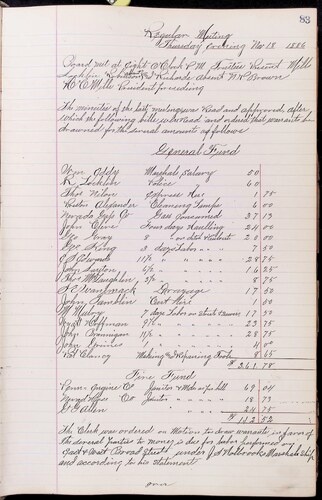 83
Regular Meeting
Thursday evening Nov 18 1886
Board met at Eight O Clock P. M. Trustees Present Mills
Richards absent W R Brown
President presiding
The minutes of the last meeting was Read and approved, after
which the following bills was Read and ordered that warrants be
drawn for the several amounts as follows
General Fund
Wm Eddy Marshals Salary 60
Police 60
Thos Expense &c 1 75
Alexander Cleaning Lamps 6 00
Nevada Gas Co Gas Consumed 27 13
John Cline Four days Hauling 24 00
Geo Gray 2 00
Geo King 3 days Labor 7 50
11½ " " 28 75
John 6½ " " 16 25
Thos McLaughlin 3½ " " 8 75
Drayage 17 50
John Cart Hire 1 00
M Malloy 7 days Labor on Streets 17 50
Hoffman 9½ 23 75
John Brannigan 11½ 28 75
John 4 00
Clancy Making & Repairing Tools 8 65
$ 341.78
Fire Fund
Penn Engine Co Janitor & 69 04
Hose Co Janitor " " " 18 73
24 75
$ 112.52
The Clerk was ordered on Motion to draw warrants in favor of
the several Parties to money is due for labor performed on
East and West Broad Street, under J. A. Holbrook Marshalship
and according to his Statement
over